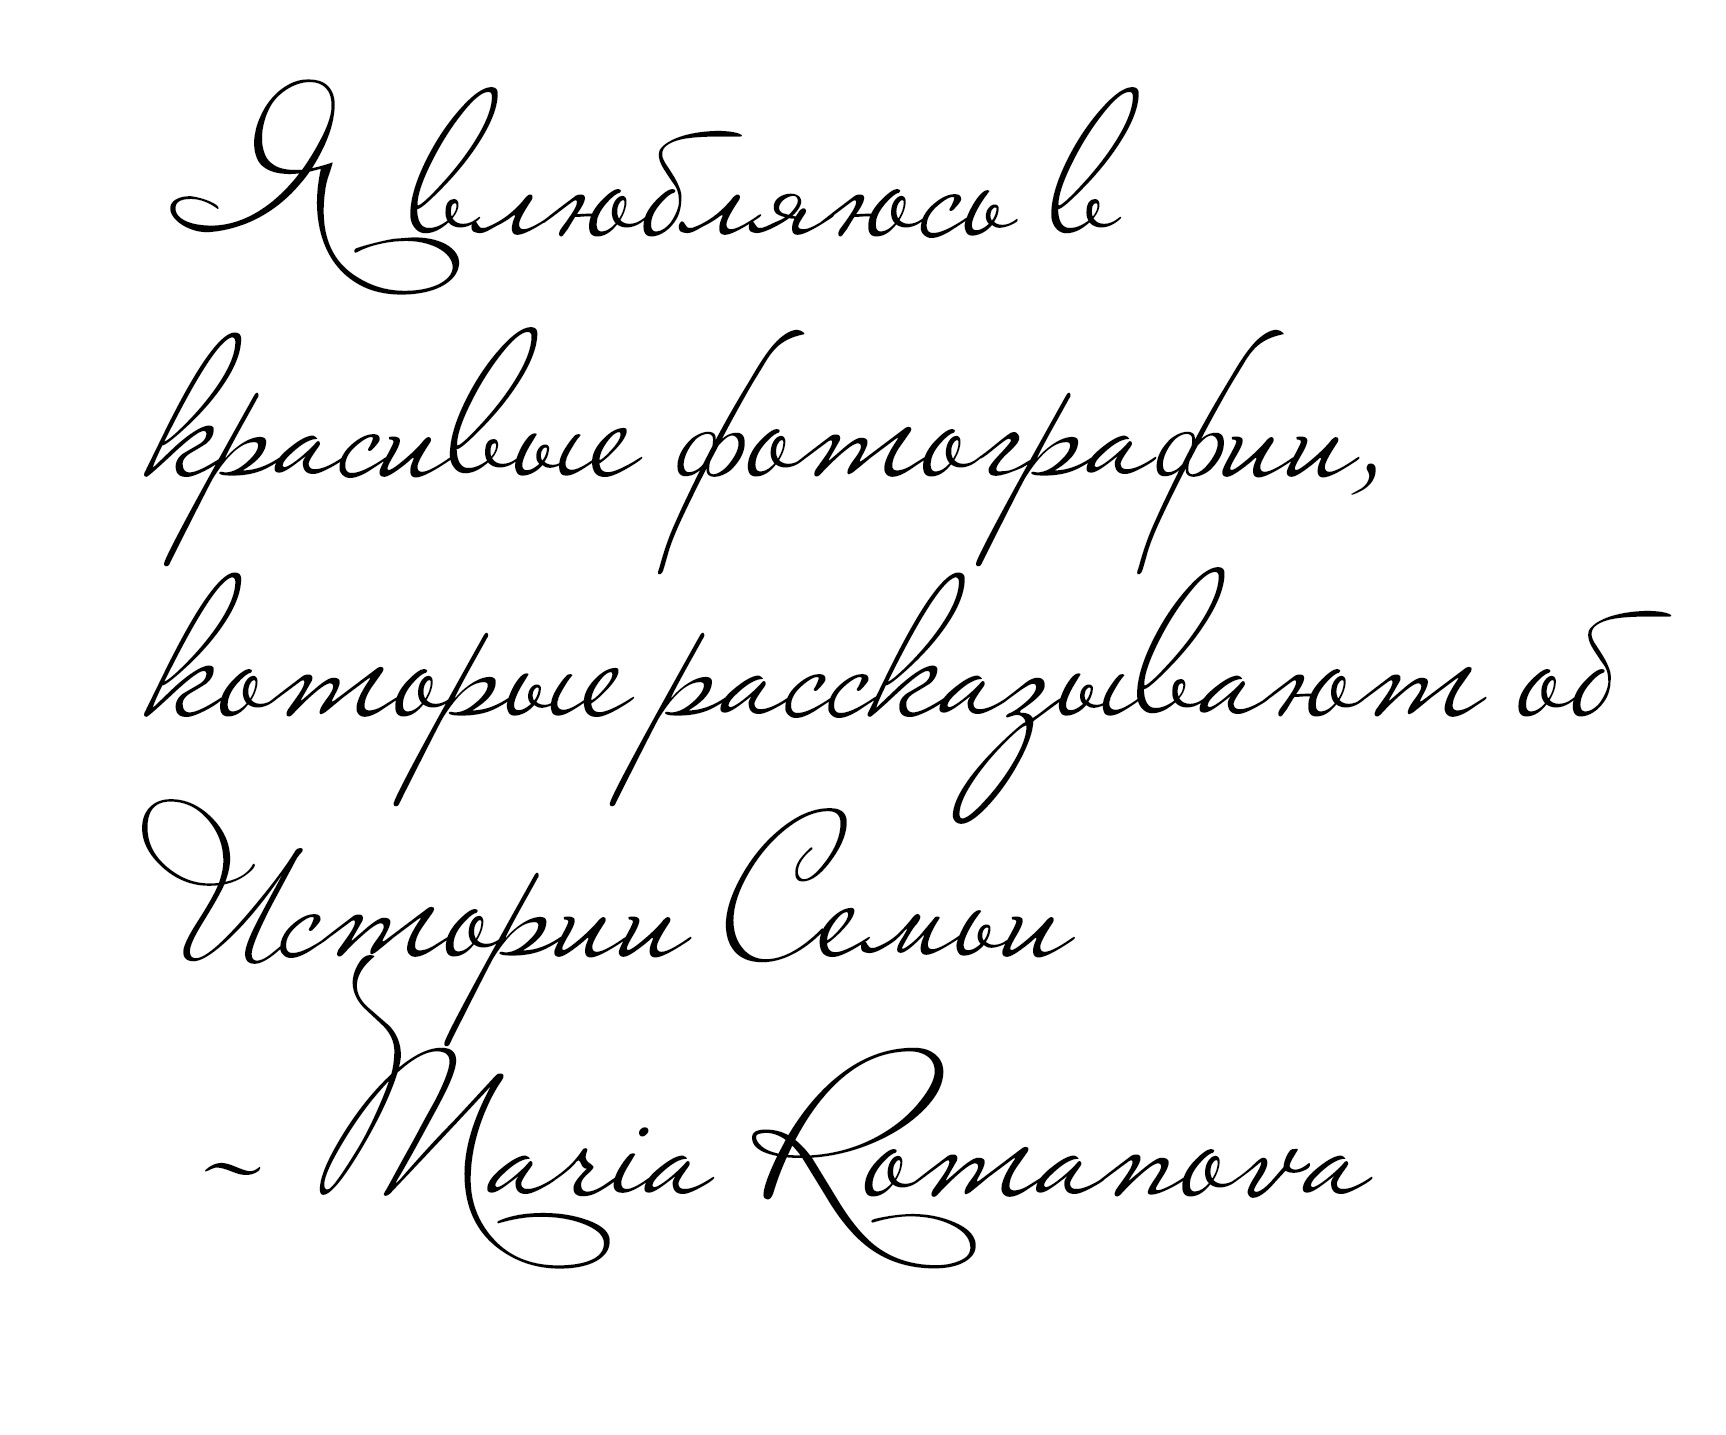 Я влюбляюсь в
красивые фотографии,
которые рассказывают об
Истории Семьи
~ Maria Romanova